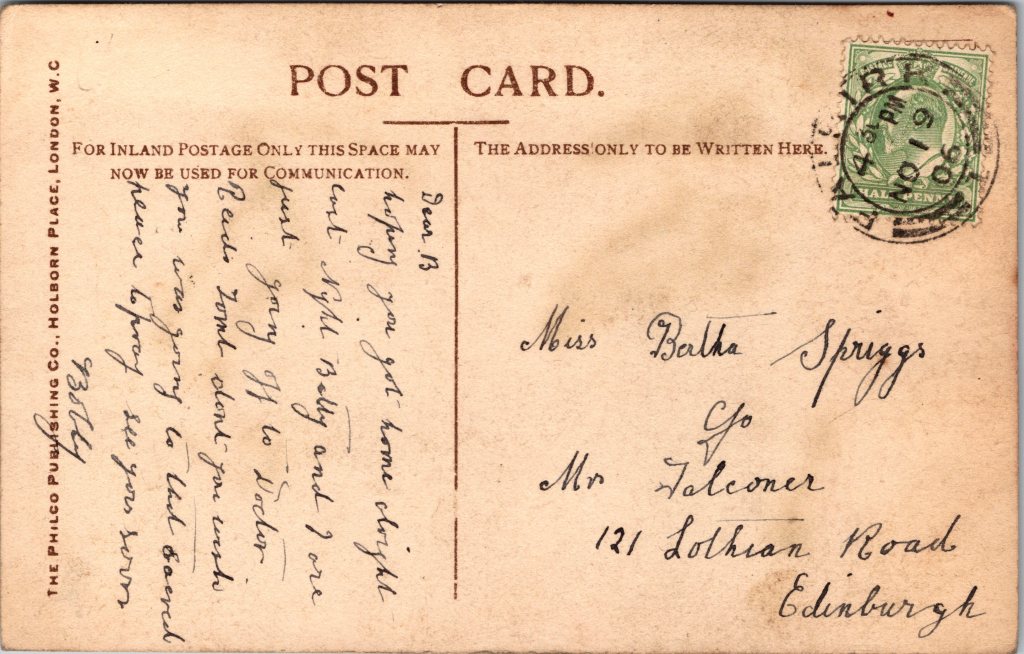 POST CARD.
FOR INLAND POSTAGE ONLY THIS SPACE MAY
NOW BE USED FOR COMMUNICATION.
THE ADDRESS ONLY TO BE WRITTEN HERE.
THE PHILCO PUBLISHING CO., HOLBORN PLACE, LONDON, W.C
FALKIRK
4 30 PM
NO 19
06
HALFPENNY
Dear B
hoping you got home alright
last Night Batty and I are
just going off to Doctor
Reids Tomt dont you wish
you was going to that sacred
peace to pray see you soon
Bobby
Miss Bertha Spriggs
c/o
Mr Falconer
121 Lothian Road
Edinburgh